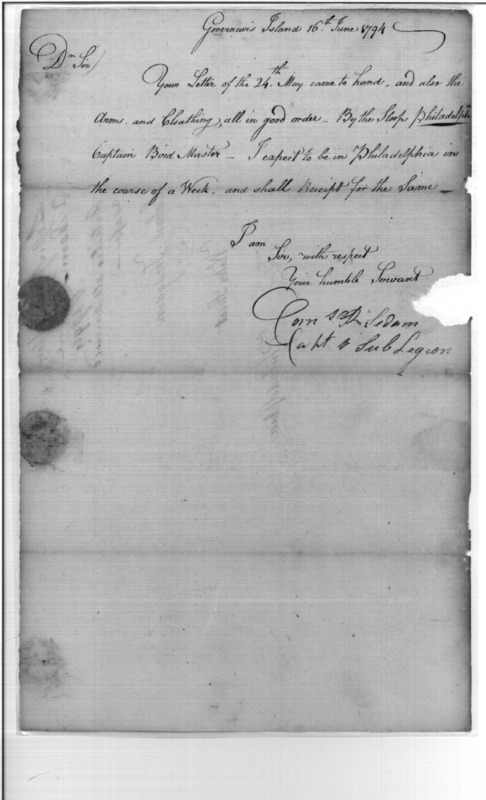 Governors Island 16th June 1794
Dr Sir
Your Letter of the 24th May came to hand, and also the
Arms and Cloathing, all in good order - By the Sloop Philadelpa
Captain Bird Master - I expect to be in Pheladelphia in
the course of a Week, and shall Receipt for the Same -
I am
Sir, with respect
Your humble Servant
Corns Rr Sedam
Capt Sub Legion